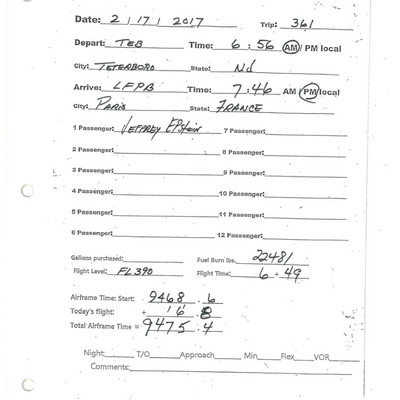 Date: 2 / 17 / 2017 Trip: 361
Depart: TEB Time: 6 : 56 AM / PM local
City: TETERBORO State: NJ
Arrive: LFPB Time: 7 : 46 AM / PM local
City: PARIS State: FRANCE
1 Passenger: JEFFREY EPStein 7 Passenger:
2 Passenger: 8 Passenger:
3 Passenger: 9 Passenger:
4 Passenger: 10 Passenger:
5 Passenger: 11 Passenger:
6 Passenger: 12 Passenger:
Gallons purchased: Fuel Burn lbs. 22481
Flight Level: FL390 Flight Time: 6 + 49
Airframe Time: Start: 9468 . 6
Today's flight: + 6 . 8
Total Airframe Time = 9475 . 4
Night: T/O Approach Min Flex VOR
Comments: